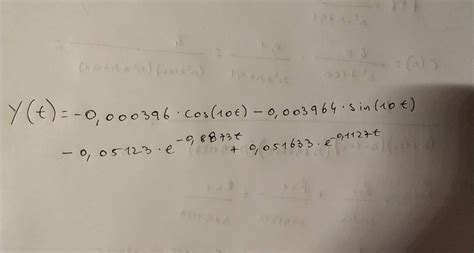 Y(t) = -0,000396 · cos(10t) - 0,003964 · sin(10t)
- 0,05123 · e^-0,8873t + 0,051633 · e^-0,1127t